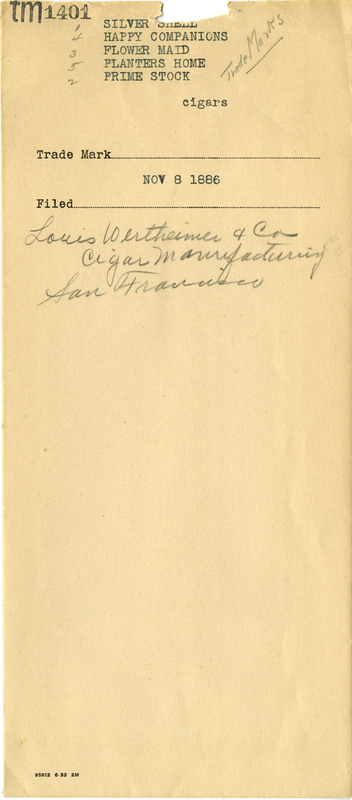 tm1401
1 SILVER SHELL
4 HAPPY COMPANIONS
3 FLOWER MAID
5 PLANTERS HOME
2 PRIME STOCK
Trade Marks
cigars
Trade Mark
NOV 8 1886
Filed
Louis Wertheimer & Co
Cigar Manufacturing
San Francisco
95812 6-32 2M